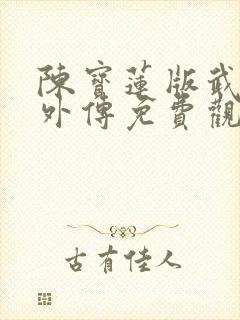 陳寶蓮版武
外傳免費觀
古有佳人